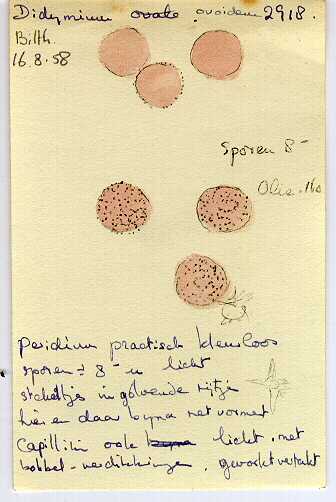 Didymium ovale ovoideum 2918.
Bilth.
16.8.58
Sporen 8-
Olie. 160
peridium practisch kleurloos
sporen ± 8- u licht
stekeltjes in golvende rijtje
hier en daar byna net vormend
Capillitia ook licht, met
bobbel-verdikkingen, gevorkt vertakt